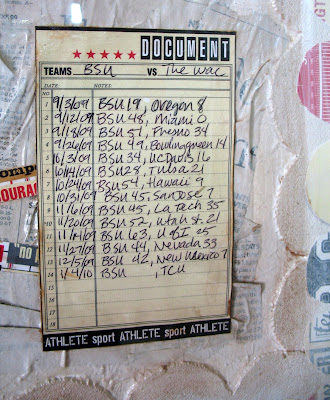 DOCUMENT
TEAMS BSU VS The Wac
DATE NOTES
NO.
1 9/3/09 BSU 19, Oregon 8
2 9/12/09 BSU 48, Miami 0
3 9/18/09 BSU 51, Fresno 34
4 9/26/09 BSU 49, Bowling green 14
5 10/3/09 BSU 34, UC Davis 16
6 10/14/09 BSU 28, Tulsa 21
7 10/24/09 BSU 54, Hawaii 9
8 10/31/09 BSU 45, San Jose 7
9 11/6/09 BSU 45, La Tech 35
10 11/20/09 BSU 52, Utah St. 21
11 11/14/09 BSU 63, U of I 25
12 11/27/09 BSU 44, Nevada 33
13 12/5/09 BSU 42, New Mexico 7
14 1/4/10 BSU , TCU
15
16
17
18
ATHLETE sport ATHLETE sport ATHLETE
"no